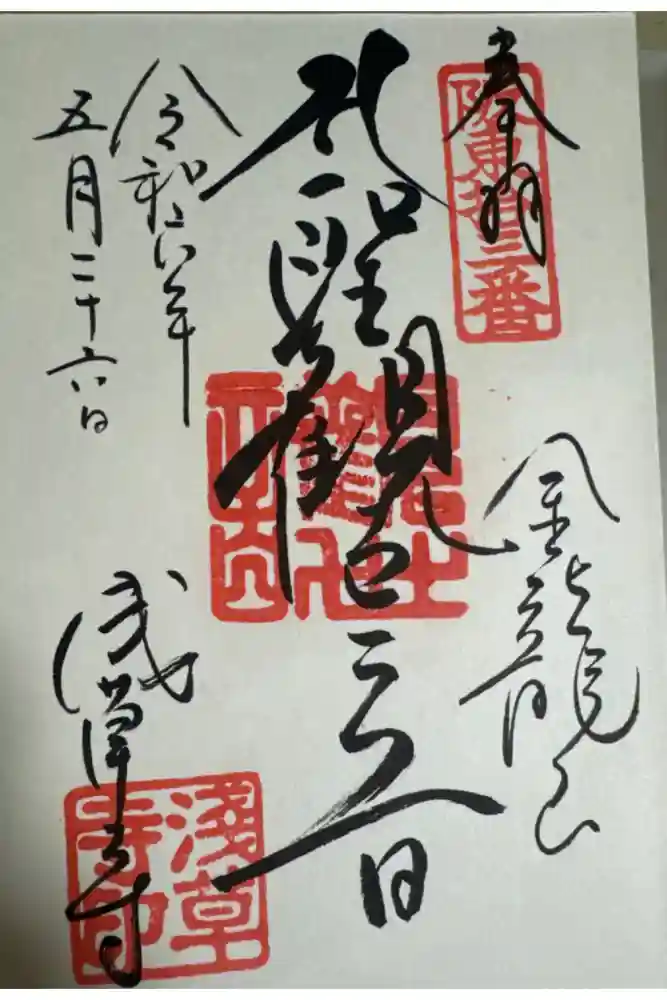 奉拝
阪東拾三番
金龍山
聖観世音
令和六年
五月二十六日
浅草寺
淺草寺印